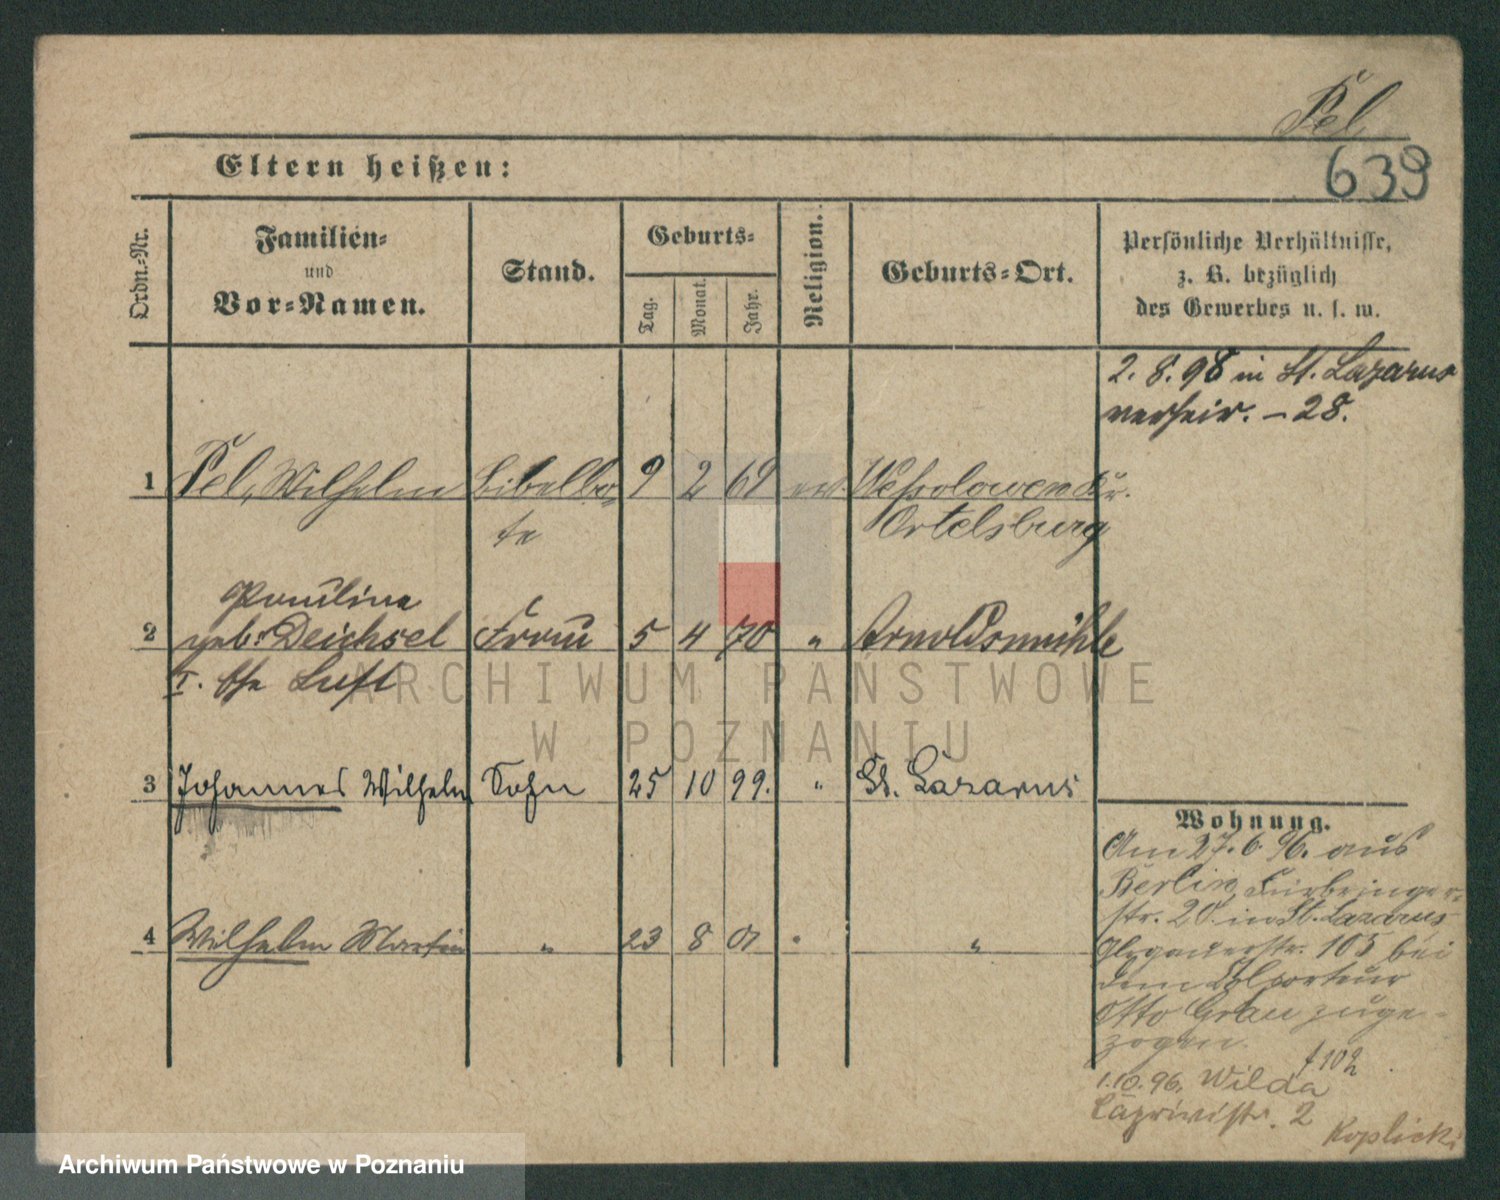 Pel
639
Eltern heißen:
Ordn.-Nr.
Familien-
und
Vor-Namen.
Stand.
Geburts-
Tag.
Monat.
Jahr.
Religion.
Geburts-Ort.
Persönliche Verhältnisse,
z. B. bezüglich
des Gewerbes u. s. w.
2. 8. 98 in St. Lazarus
verheir. – 28.
1 Pel, Wilhelm Bibelbo- 9 2 69 ev. Wessolowen Kr.
te Ortelsburg
Pauline
2 geb. Deichsel Frau 5 4 70 " Arnoldsmühle
I. Ehe Luft
3 Johannes Wilhelm Sohn 25 10 99. " St. Lazarus
4 Wilhelm Martin " 23 8 01 " "
Wohnung.
Am 27. 6. 96. aus
Berlin, Fürbringer-
str. 20. in St. Lazarus
Glogauerstr. 105 bei
dem Colporteur
Otto Grau zuge-
zogen.
1.10.96. Wilda
2
Koplicki
ARCHIWUM PAŃSTWOWE
W POZNANIU
Archiwum Państwowe w Poznaniu